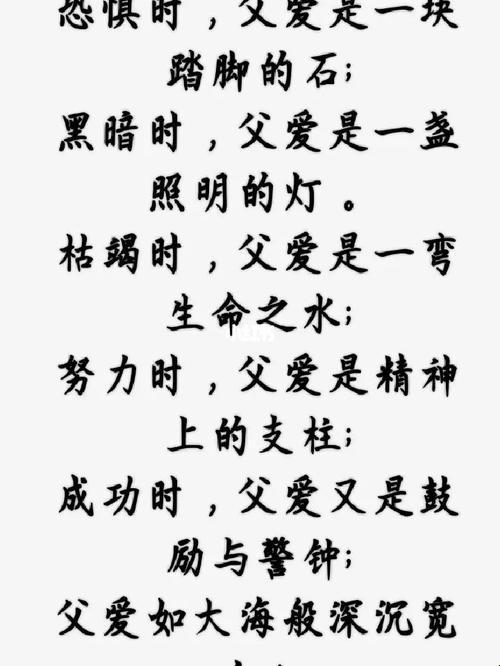 恐惧时，父爱是一块
踏脚的石;
黑暗时，父爱是一盏
照明的灯。
枯竭时，父爱是一弯
生命之水;
努力时，父爱是精神
上的支柱;
成功时，父爱又是鼓
励与警钟;
父爱如大海般深沉宽